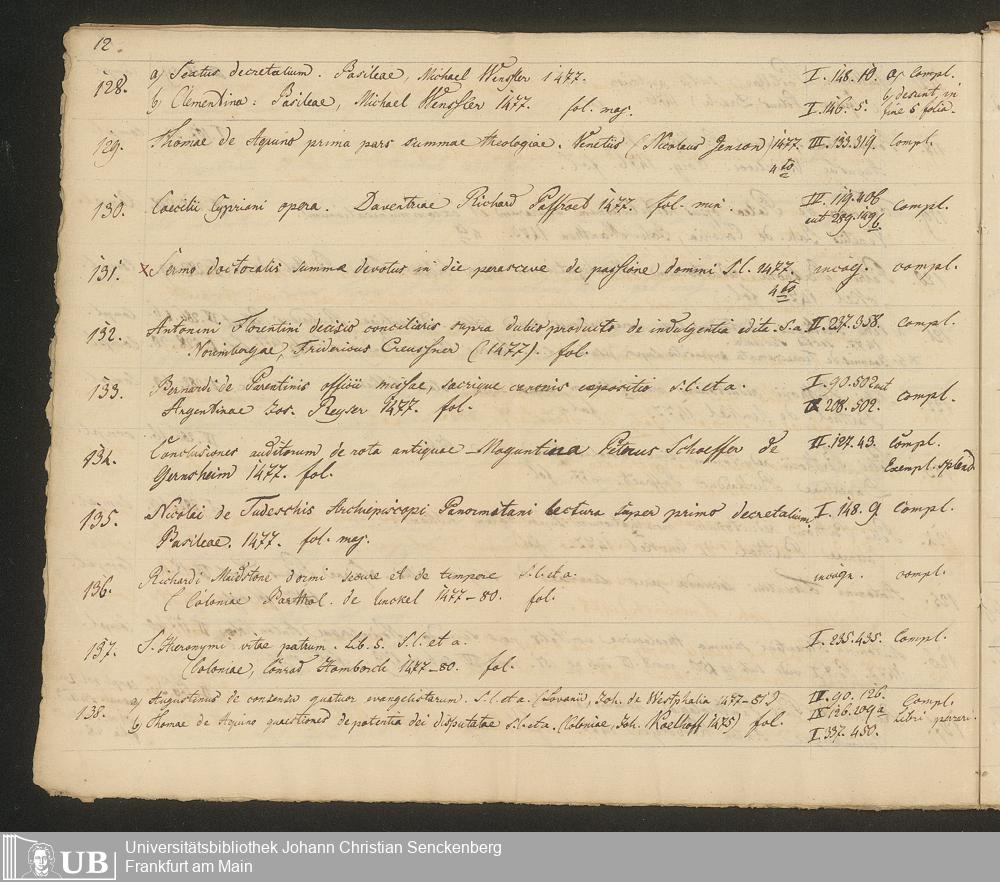 12.
128. a) Sextus decretalium. Basileae, Michael Wenssler 1477. I. 148. 10. a) Compl.
b) Clementina: Basileae, Michael Wenssler 1477. fol. maj. I. 146. 5. b) desunt in fine 5 folia.
129. Thomae de Aquino prima pars summae theologiae. Venetiis (Nicolaus Jenson) 1477. III. 133. 319. Compl.
4to
130. Caecilii Cypriani opera. Daventriae Richard Paffroet 1477. fol. min. IV. 119. 406 Compl.
289. 149b.
131. x Sermo doctoralis summae devotus in die perasceve de passione domini S. l. 1477. incogn. compl.
4to
132. Antonini Florentini decisio conciliaris supra dubio producto de indulgentia edita. S. a. II. 237. 358. Compl.
Norimbergae, Fridericus Creussner (1477). fol.
133. Bernardi de Parentinis officii missae, sacrique canonis expositio s. l. et a. I. 90. 502 aut
Argentinae Jos. Reyser 1477. fol. 208. 502. Compl.
134. Conclusiones auditorum de rota antiquae Moguntina Petrus Schoeffer de II. 127. 43. Compl.
Gernsheim 1477. fol. Exempl. splend.
135. Nicolai de Tudeschis Archiepiscopi Panormitani lectura super primo decretalium. I. 148. 9. Compl.
Basileae. 1477. fol. maj.
136. Richardi Maidstone dormi secure et de tempore S. l. et a. incogn. compl.
(Coloniae Barthol. de Unckel 1477-80. fol.
137. S. Hieronymi vitae patrum. Lib. 5. S. l. et a. I. 235. 435. Compl.
(Coloniae, Conrad Homborch 1477-80. fol.
138. a) Augustinus de consensu quatuor evangelistarum. S. l. et a. (Lovanii, Joh. de Westphalia 1477-81) IV. 90. 126. Compl.
b) Thomae de Aquino quaestiones de potentia dei disputatae s. l. et a. (Coloniae, Joh. Koelhoff 1475) fol. IX. 126. 209a libri
I. 337. 450.
UB
Universitätsbibliothek Johann Christian Senckenberg
Frankfurt am Main